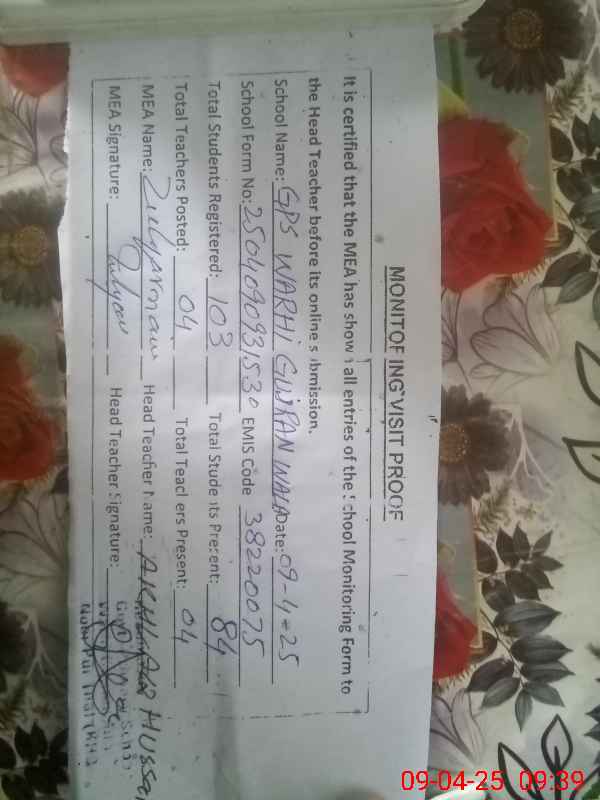 MONITORING VISIT PROOF
It is certified that the MEA has show all entries of the School Monitoring Form to
the Head Teacher before its online submission.
School Name: GPS WARHI GUJRANWALA Date: 09-4-25
School Form No: 250409093153 0 EMIS Code 38220075
Total Students Registered: 103 Total Students Present: 84
Total Teachers Posted: 04 Total Teachers Present: 04
MEA Name: Head Teacher Name: AKHLAQ HUSSAIN
MEA Signature: Head Teacher Signature:
09-04-25 09:39